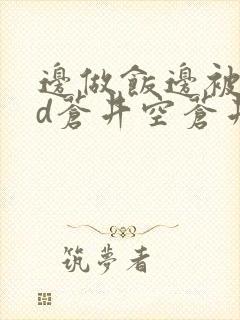 邊做飯邊被
d蒼井空蒼井
筑夢者